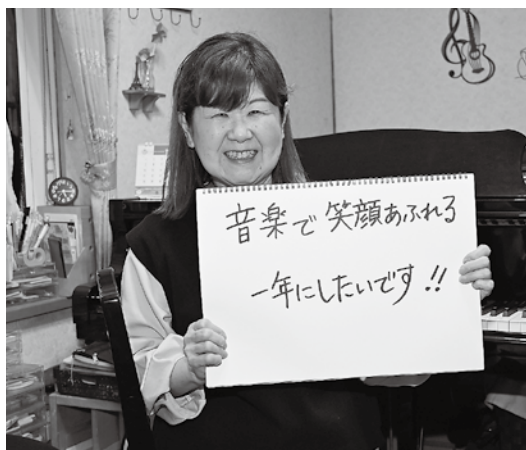 音楽で笑顔あふれる
一年にしたいです!!